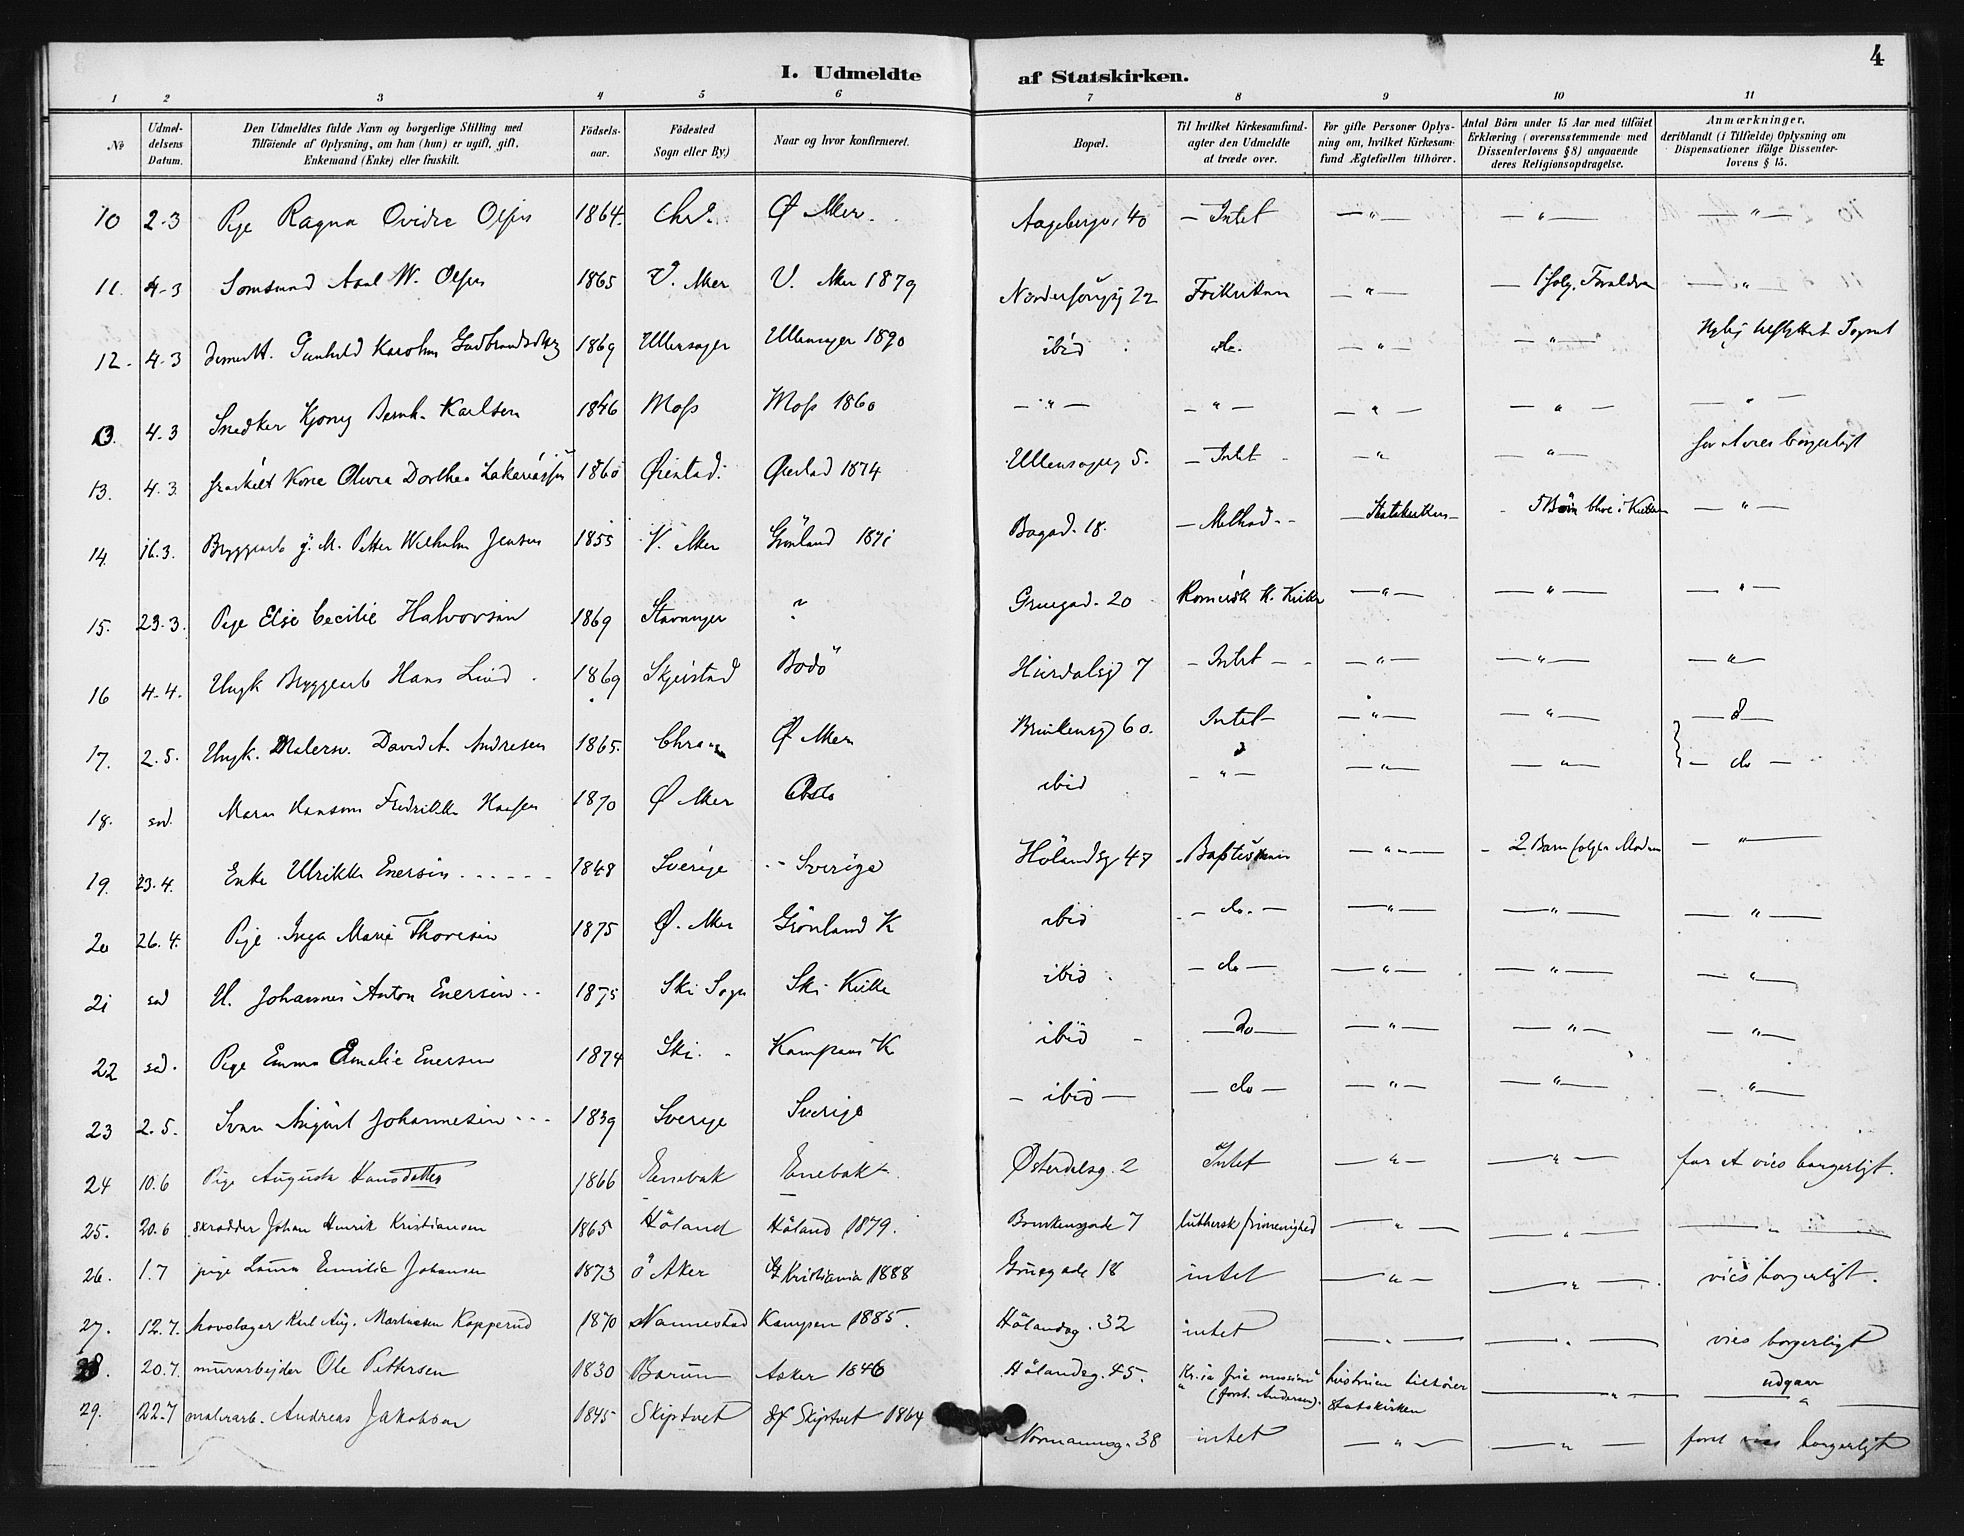 4
I. Udmeldte af Statskirken.
1 2 3 4 5 6 7 8 9 10 11
№ | Udmel-delsens Datum. | Den Udmeldtes fulde Navn og borgerlige Stilling med Tilföiende af Oplysning, om han (hun) er ugift, gift, Enkemand (Enke) eller fraskilt. | Födsels-aar. | Födested Sogn eller By.) | Naar og hvor konfirmeret. | Bopæl. | Til hvilket Kirkesamfund agter den Udmeldte at træde over. | For gifte Personer Oplysning om, hvilket Kirkesamfund Ægtefællen tilhörer. | Antal Börn under 15 Aar med tilföiet Erklæring (overensstemmende med Dissenterlovens § 8) angaaende deres Religionsopdragelse. | Anmærkninger, deriblandt (i Tilfælde) Oplysning om Dispensationer ifölge Dissenterlovens § 15.
10 2-3 Pige Ragna Ovidia Olsen 1864. Chr. Ø Aker. 40 — Intet — " — — " — — " —
11. 4-3 W. Olsen 1865 V. Aker V. Aker 1879 22 Frikirken — " — — " —
12. 4-3 Gunhild Karoline 1869 Ullensager Ullensager 1890 ibid do. — " — — " —
13. 4-3 Snedker Bernh. Karlsen 1846 Moss Moss 1860 — " — — " — — " — — " — — " —
13. 4.3. fraskilt Kone Oliva Dorthea 1860 1874 Ullensagerg 5. — Intet — " — " — for at vies borgerligt
14. 16.3. Bryggearb g. M. Petter Wilhelm Jensen 1855 V. Aker Grönland 1871 Bogad. 18. — Method. — — Statskirken — 5 Börn blive i Kirken — " —
15. 23.3. Pige Else Cecilie Halvorsen 1869 Stavanger " Gruegad. 20 Romersk K. Kirke — " — — " — — " —
16 4.4. Ungk Bryggearb Hans Lind 1869 Skjerstad Bodö Hurdalsg 7 — Intet — — " — — " — — " —
17. 2.5. Ungk. Malersv. David A. Andresen 1865. Chra Ø Aker Brinkensg 60. Intet — " — — " — — d —
18. sd. Maren Fredrikke 1870 Ø Aker Oslo ibid — " — — " — — " — — do —
19. 23.4. Enke Ulrikke Enersen 1848 Sverige Sverige Hölandsg 47 — — " — — 2 Barn følger Moderen — " —
20 26.4. Pige Inga Marie Thoresen 1875 Ø. Aker Grönland K ibid — do. — — " — — " — — " —
21 sd U. Johannes Anton Enersen 1875 Ski Sogn Ski Kirke ibid — do — — " — — " — — " —
22 sd. Pige Emma Amalie Enersen 1874 Ski. Kampens K ibid — do — — " — — " — — " —
23 2.5. Sven August Johannesen 1839 Sverige Sverige — ibid — — do — — " — — " — — " —
24 10.6 Pige Augusta Hansdatter 1866 Enebak Enebak Østerdalsg. 2 Intet — " — — " — for at vies borgerligt.
25. 20.6 skrædder Johan Henrik Kristiansen 1865 Höland Höland 1879. Brinkensgade 7 luthersk frimenighed — " — — " — — " —
26. 1.7 pige Laura Emilie Johansen 1873 ö Aker Kristiania 1888 Gruegade 18 intet — " — — " — vies borgerligt.
27. 12.7. hovslager Karl Aug. Martinsen Kopperud 1870 Nannestad Kampen 1885. Hölandsg. 32 intet — " — — " — vies borgerligt
28. 20.7. murarbejder Ole Pettersen 1830 Bærum Asker 1846 Hölandsg. 45. Kr.ia frie mission (forst. Andersen). hustruen tilhörer statskirken — " — udgaar
29. 22.7 malerarb. Andreas Jakobsen 1845 Skiptvet Skiptvet 1864 Normannsg. 38 intet — " — — " — vies borgerligt